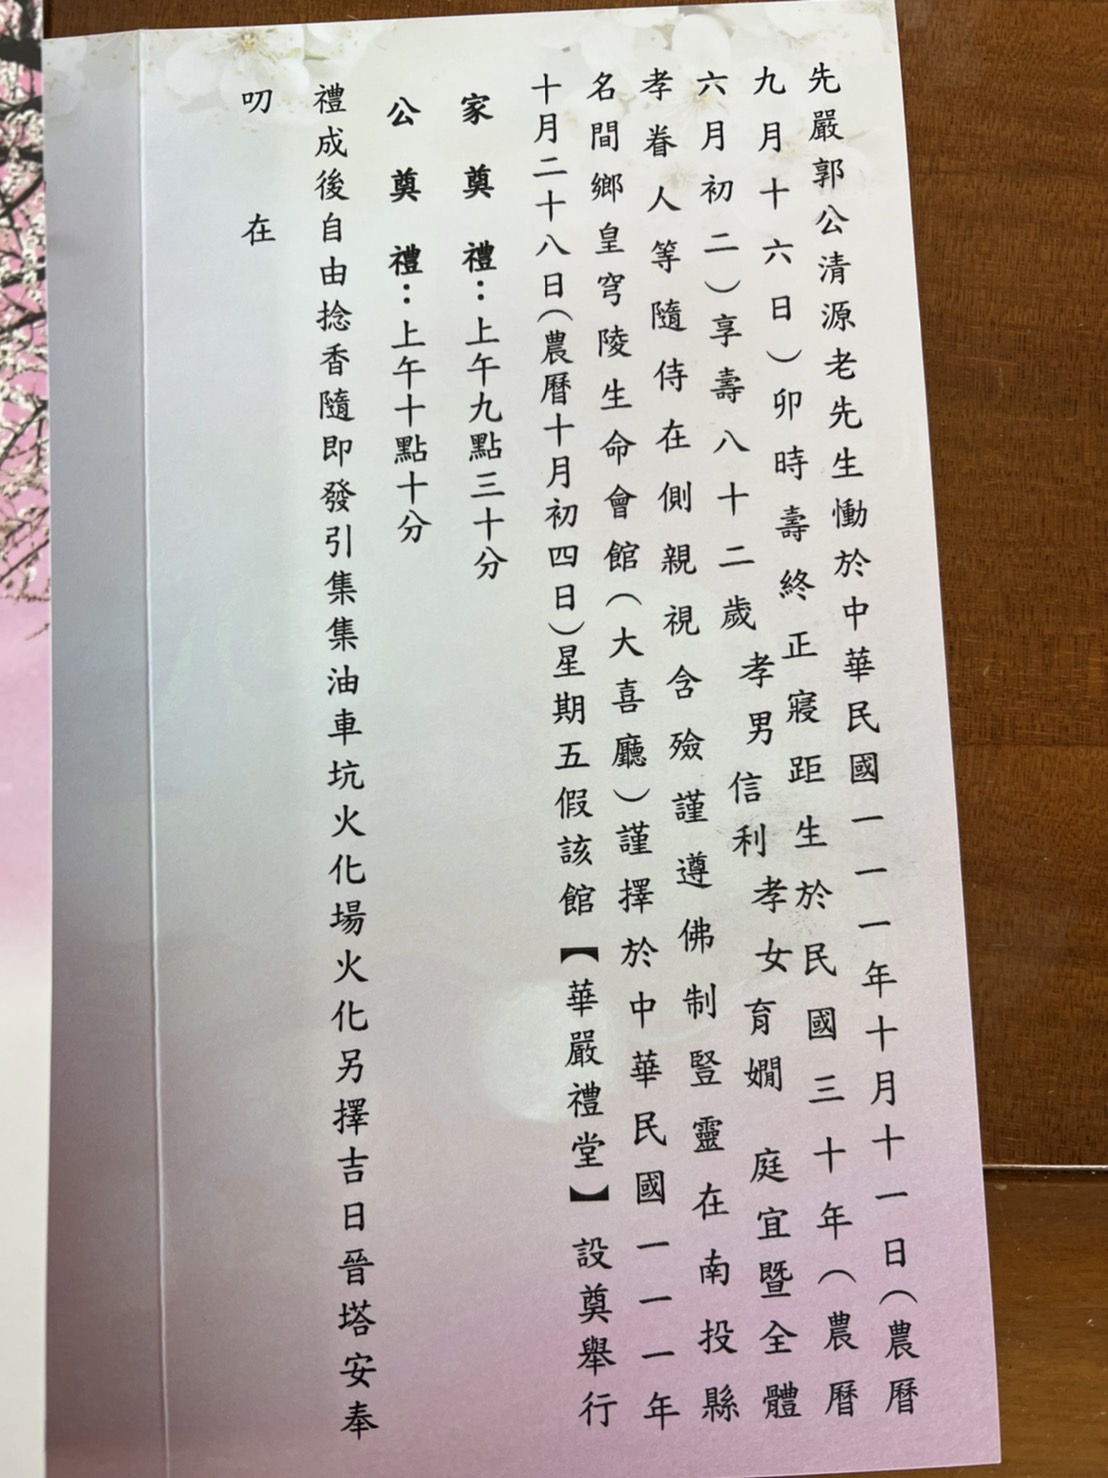 先嚴郭公清源老先生慟於中華民國一一一年十月十一日(農曆
九月十六日)卯時壽終正寢距生於民國三十年(農曆
六月初二)享壽八十二歲孝男信利孝女育嫺 庭宜暨全體
孝眷人等隨侍在側親視含殮謹遵佛制豎靈在南投縣
名間鄉皇穹陵生命會館(大喜廳)謹擇於中華民國一一一年
十月二十八日(農曆十月初四日)星期五假該館【華嚴禮堂】設奠舉行
家奠禮:上午九點三十分
公奠禮:上午十點十分
禮成後自由捻香隨即發引集集油車坑火化場火化另擇吉日晉塔安奉
叨 在